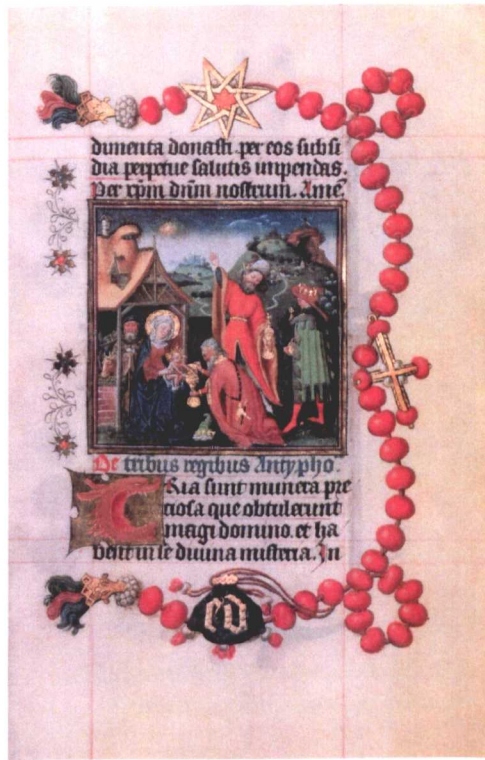 dimenta donasti. per eos subsi
dia perpetue salutis impendas.
Per xp̄m dn̄m nostrum. Amē
De tribus regibus Antypho.
TRia sunt munera pre
ciosa que obtulerunt
magi domino. et ha
bent in se diuina misteria. In